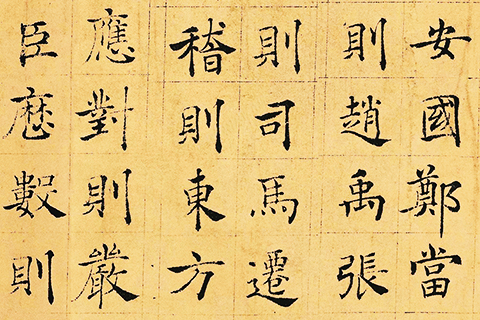 安國鄭當
則趙禹張
則司馬遷
稽則東方
應對則嚴
臣曆數則